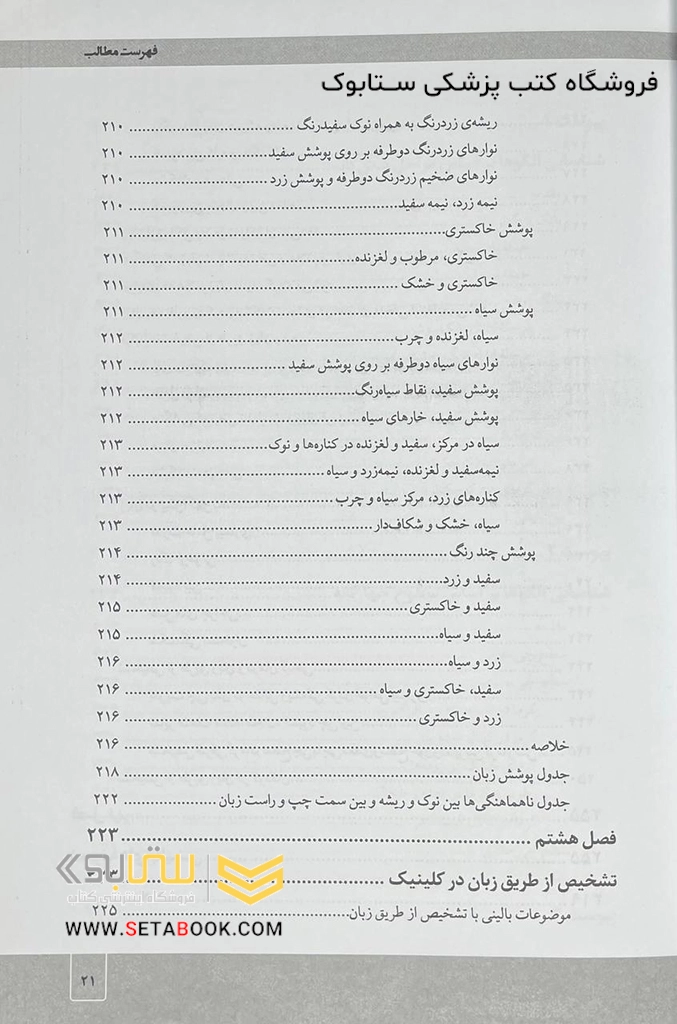 فهرست مطالب
فروشگاه کتب پزشکی ستابوک
ریشه‌ی زردرنگ به همراه نوک سفیدرنگ ..... ۲۱۰
نوارهای زردرنگ دوطرفه بر روی پوشش سفید..... ۲۱۰
نوارهای ضخیم زردرنگ دوطرفه و پوشش زرد ..... ۲۱۰
نیمه زرد، نیمه سفید..... ۲۱۰
پوشش خاکستری..... ۲۱۱
خاکستری، مرطوب و لغزنده..... ۲۱۱
خاکستری و خشک ..... ۲۱۱
پوشش سیاه ..... ۲۱۱
سیاه، لغزنده و چرب..... ۲۱۲
نوارهای سیاه دوطرفه بر روی پوشش سفید ..... ۲۱۲
پوشش سفید، نقاط سیاه‌رنگ..... ۲۱۲
پوشش سفید، خارهای سیاه ..... ۲۱۲
سیاه در مرکز، سفید و لغزنده در کناره‌ها و نوک..... ۲۱۳
نیمه‌سفید و لغزنده، نیمه‌زرد و سیاه ..... ۲۱۳
کناره‌های زرد، مرکز سیاه و چرب ..... ۲۱۳
سیاه، خشک و شکاف‌دار ..... ۲۱۳
پوشش چند رنگ ..... ۲۱۴
سفید و زرد..... ۲۱۴
سفید و خاکستری ..... ۲۱۵
سفید و سیاه..... ۲۱۵
زرد و سیاه..... ۲۱۶
سفید، خاکستری و سیاه ..... ۲۱۶
زرد و خاکستری ..... ۲۱۶
خلاصه ..... ۲۱۶
جدول پوشش زبان ..... ۲۱۸
جدول ناهماهنگی‌ها بین نوک و ریشه و بین سمت چپ و راست زبان ..... ۲۲۲
فصل هشتم ..... ۲۲۳
تشخیص از طریق زبان در کلینیک .....
ستابوک
فروشگاه اینترنتی کتاب
موضوعات بالینی با تشخیص از طریق زبان..... ۲۲۵
WWW.SETABOOK.COM
۲۱